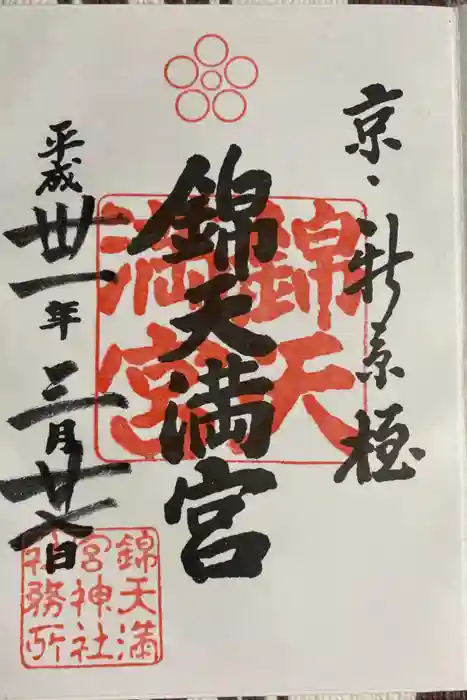 京・新京極
錦天満宮
平成丗一年三月廿八日
錦天
満宮
錦天満
宮神社
社務所